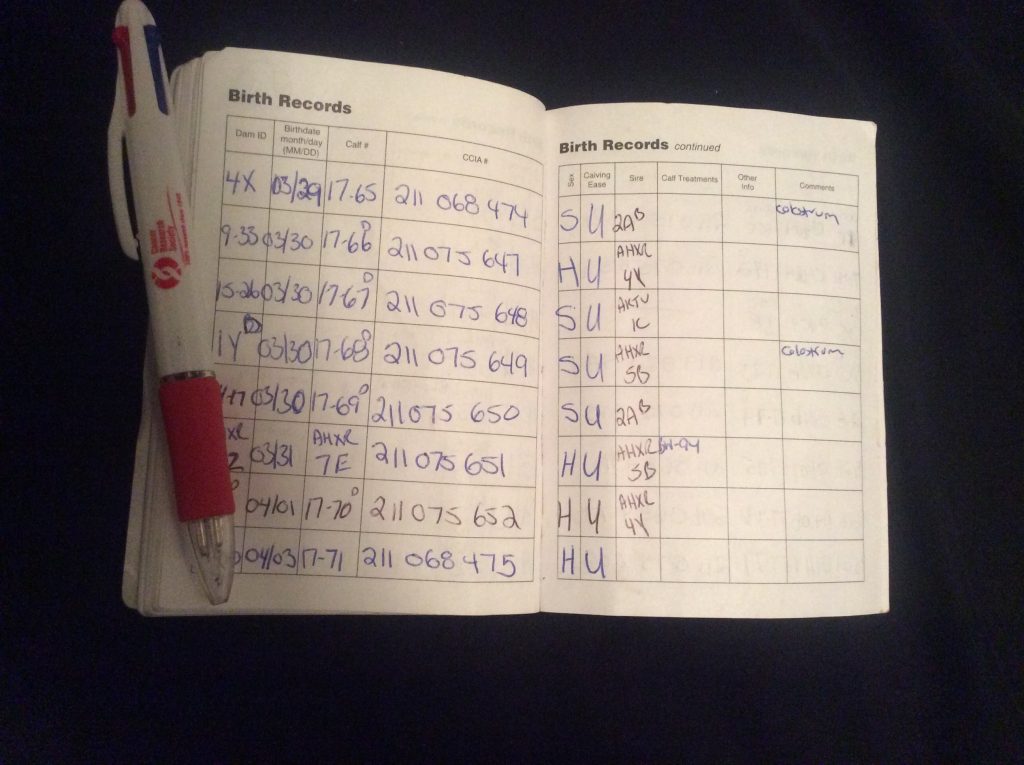 Birth Records
Dam ID Birthdate month/day (MM/DD) Calf # CCIA #
4X 03/29 17-65 211 068 474
9-33 03/30 17-66D 211 075 647
15-26 03/30 17-67D 211 075 648
1YD 03/30 17-68D 211 075 649
03/30 17-69D 211 075 650
03/31 AHXR 7E 211 075 651
04/01 17-70D 211 075 652
04/03 17-71 211 068 475
Birth Records continued
Sex Calving Ease Sire Calf Treatments Other Info Comments
S U 2AB colostrum
H U AHXR 4Y
S U AKTU 1C
S U AHXR 5B colostrum
S U 2AB
H U AHXR 5B
H U AHXR 4Y
H U